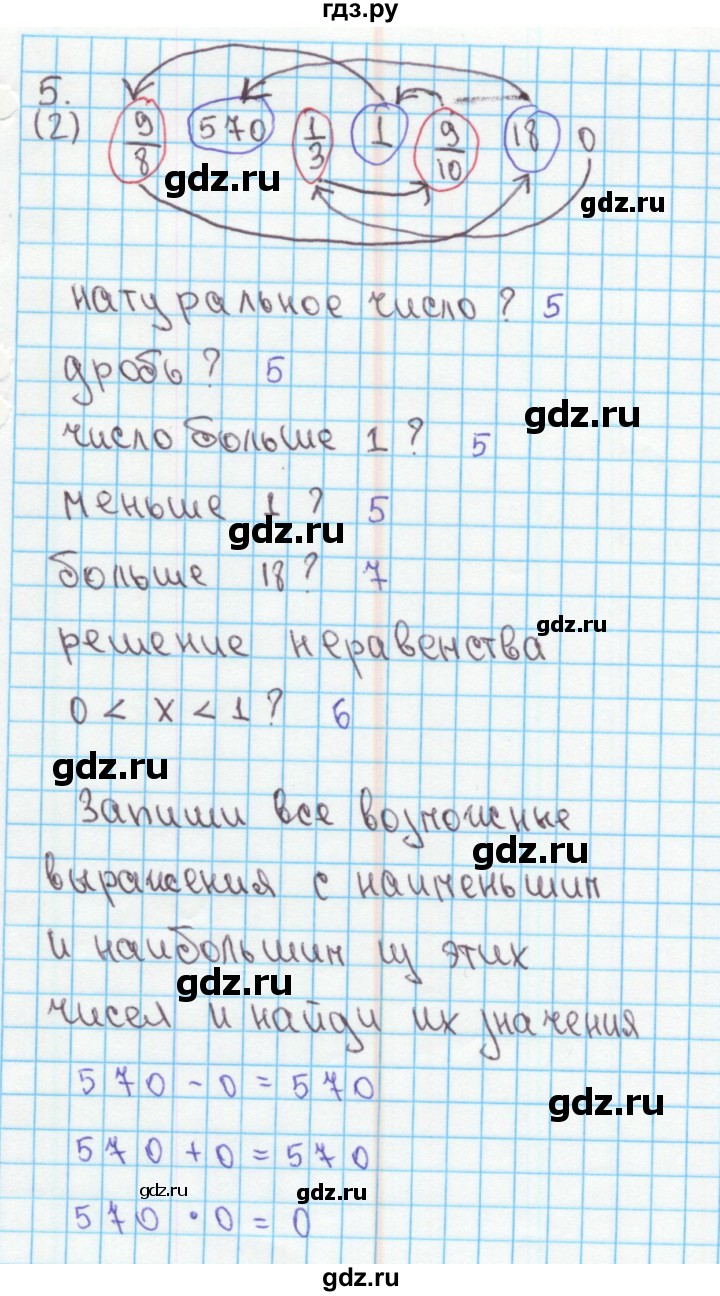 гдз.ру
5.
(2) 9/8 570 1/3 1 9/10 18 0
gdz.ru
gdz.ru
натуральное число? 5
дробь? 5
gdz.ru
число больше 1? 5
меньше 1? 5
gdz.ru
больше 18? 7
gdz.ru
решение неравенства
0 < x < 1? 6
gdz.ru
Запиши все возможные
gdz.ru
выражения с наименьшим
и наибольшим из этих
gdz.ru
чисел и найди их значения
570 - 0 = 570
gdz.ru
570 + 0 = 570
gdz.ru
gdz.ru
570 · 0 = 0
gdz.ru